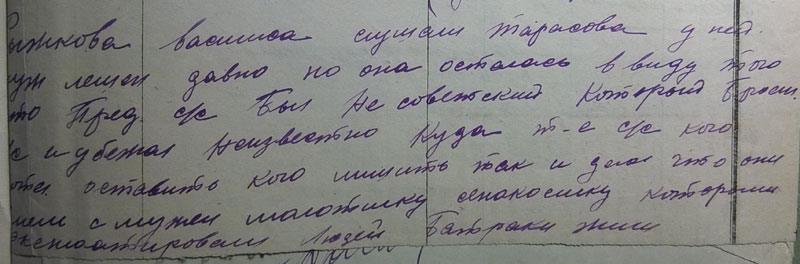 Рыжкова василиса слушали тарасова у ней
муж лешен давно но она осталась в виду того
что Пред. с/с Был Не советский который Бросил
с/с и убежал неизвестно куда т-е с/с кого
хотел оставить кого лишить так и делал что они
имели с мужем молотилку сенокосилку которыми
эксплоатировали Людей Батраки жили